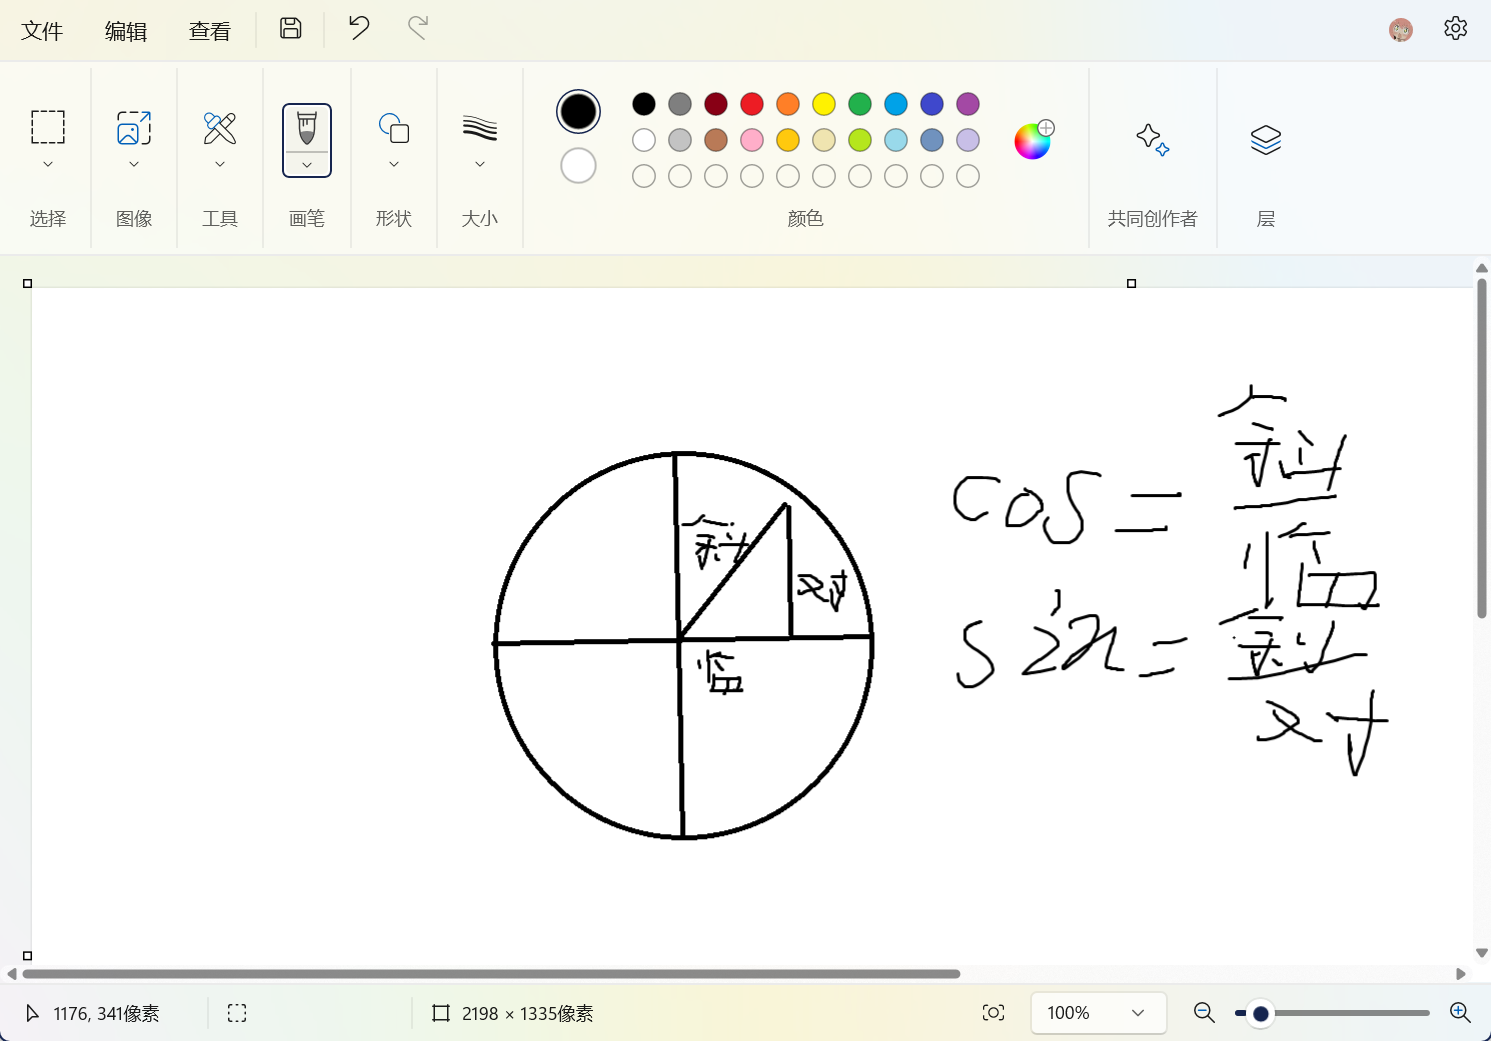 文件 编辑 查看
选择 图像 工具 画笔 形状 大小 颜色 共同创作者 层
cos = 斜
临
斜 对
临
sin = 斜
对
1176, 341像素 2198 × 1335像素 100%